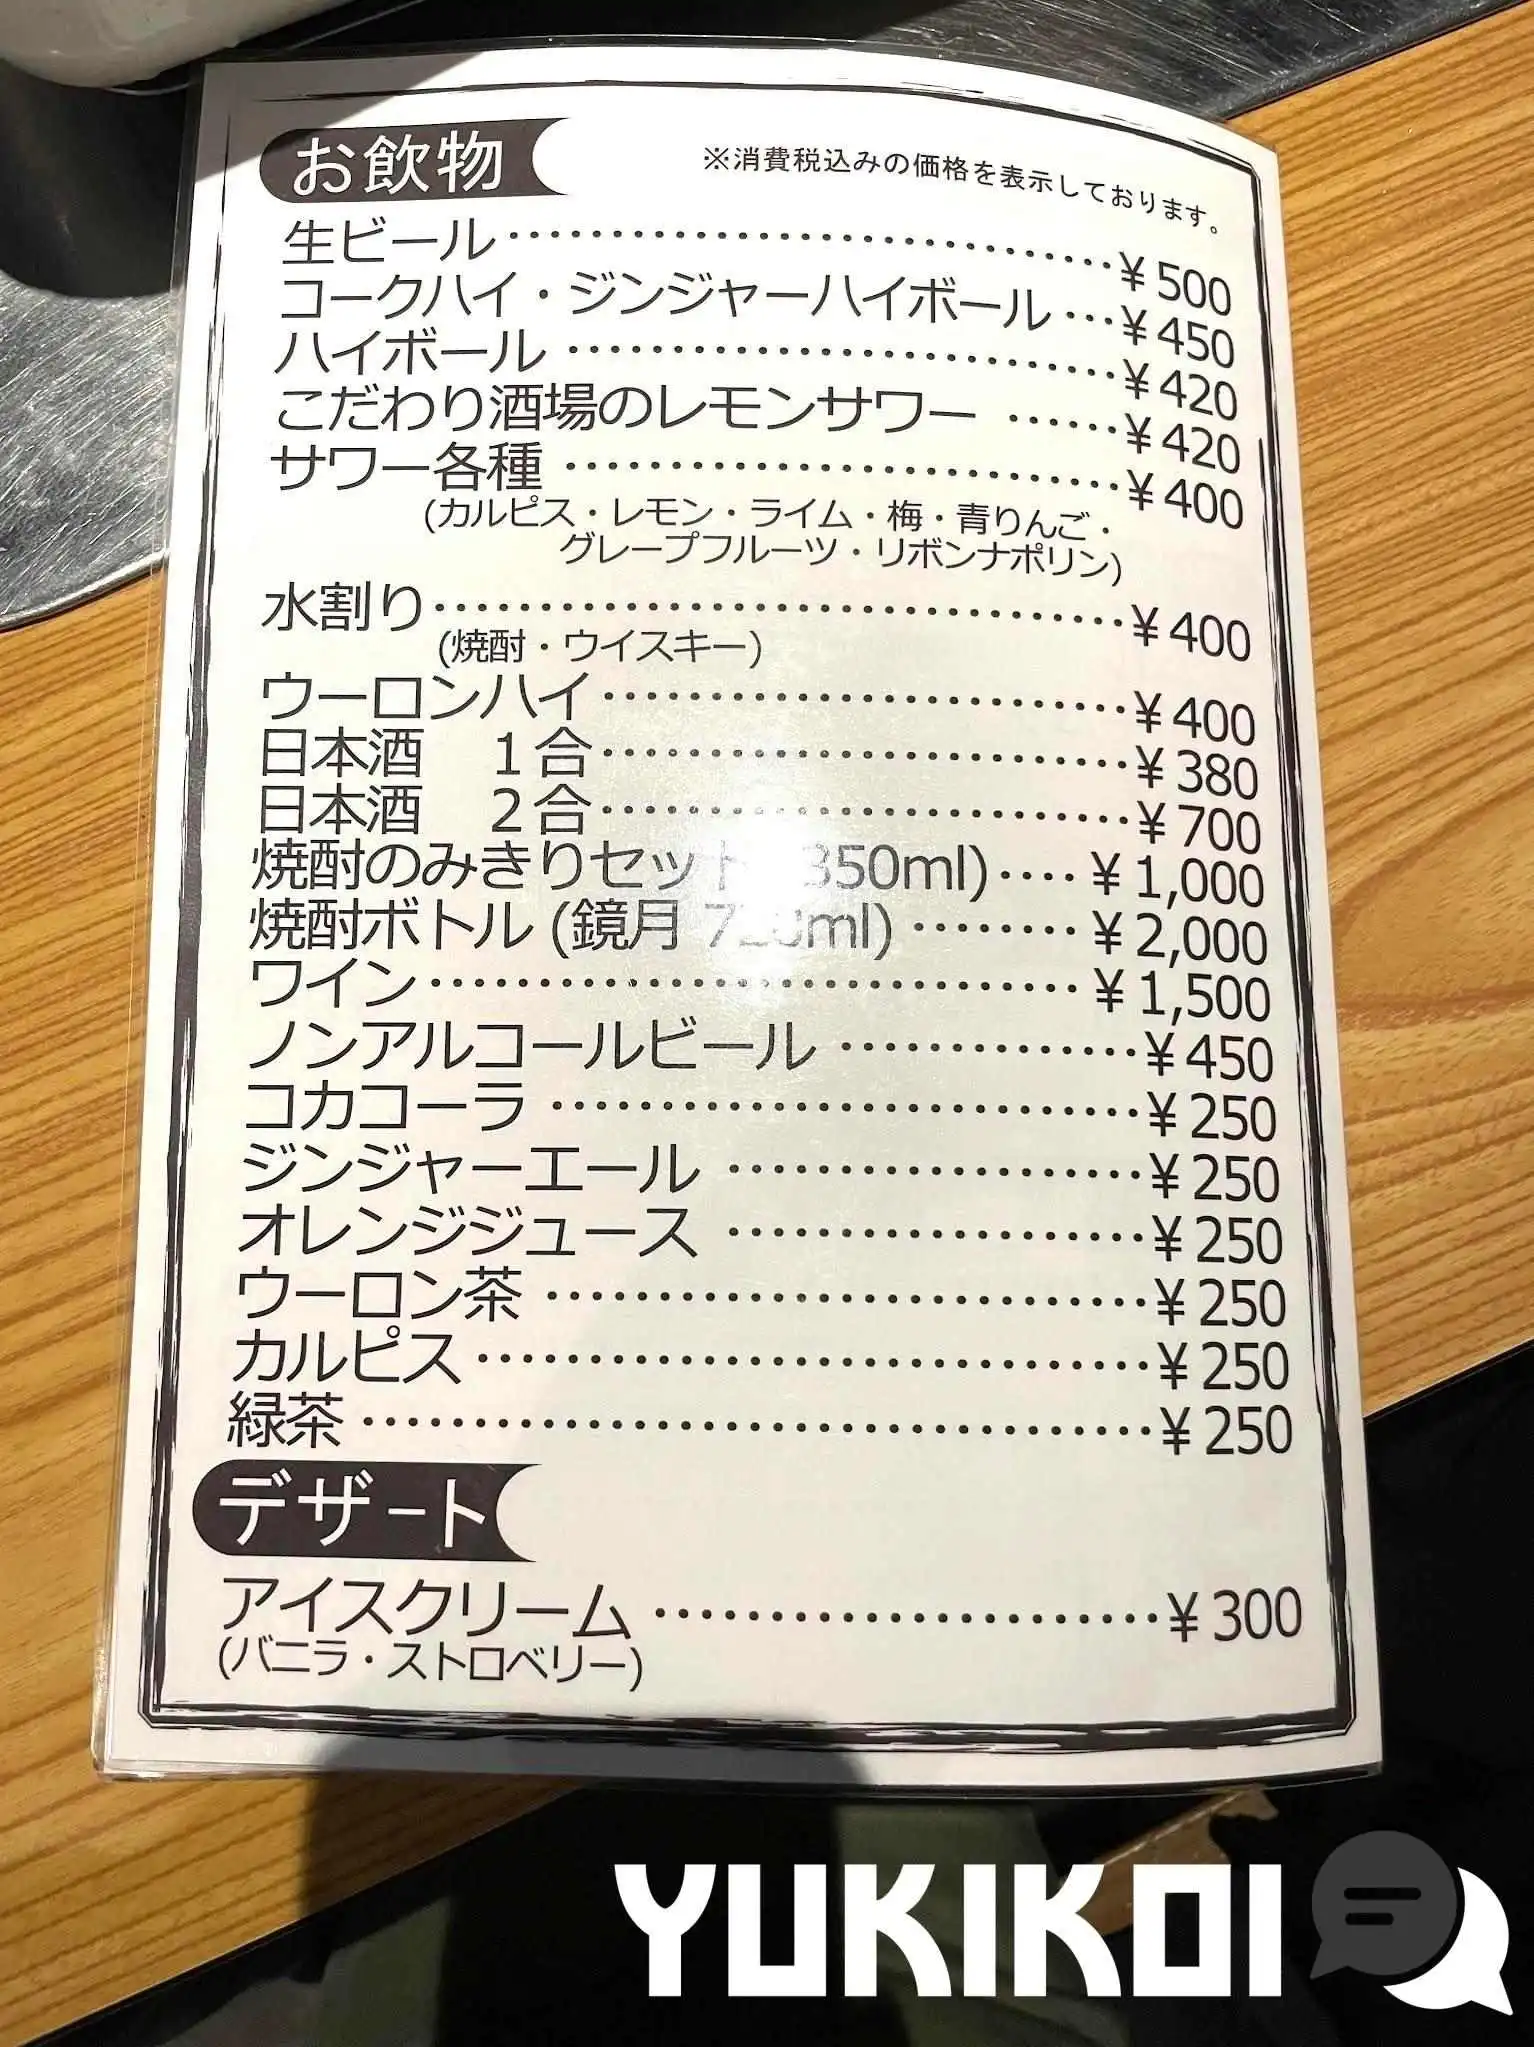 お飲物
※消費税込みの価格を表示しております。
生ビール ¥500
コークハイ・ジンジャーハイボール ¥450
ハイボール ¥420
こだわり酒場のレモンサワー ¥420
サワー各種 ¥400
(カルピス・レモン・ライム・梅・青りんご・
グレープフルーツ・リボンナポリン)
水割り ¥400
(焼酎・ウイスキー)
ウーロンハイ ¥400
日本酒 1合 ¥380
日本酒 2合 ¥700
焼酎のみきりセット 350ml) ¥1,000
焼酎ボトル (鏡月 ml) ¥2,000
ワイン ¥1,500
ノンアルコールビール ¥450
コカコーラ ¥250
ジンジャーエール ¥250
オレンジジュース ¥250
ウーロン茶 ¥250
カルピス ¥250
緑茶 ¥250
デザート
アイスクリーム ¥300
(バニラ・ストロベリー)
YUKIKOI